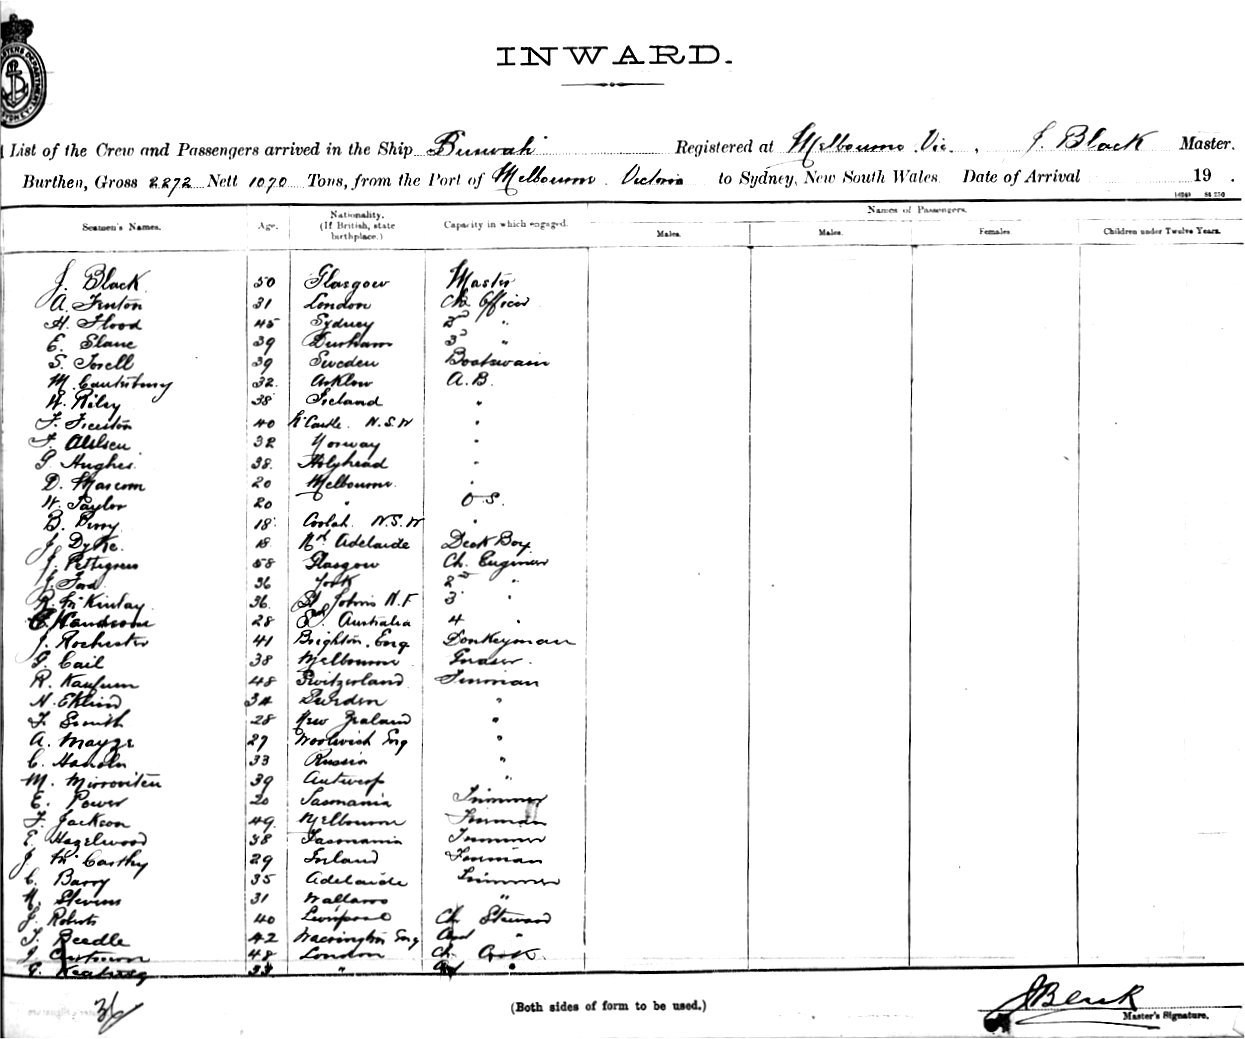 INWARD.
List of the Crew and Passengers arrived in the Ship Burwah Registered at Melbourne Vic. , J. Black Master.
Burthen, Gross 2272 Nett 1070 Tons, from the Port of Melbourne Victoria to Sydney, New South Wales Date of Arrival 19 .
Names of Passengers.
Seamen's Names. Age. Nationality. (If British, state birthplace.) Capacity in which engaged. Males. Males. Females. Children under Twelve Years.
J. Black 50 Glasgow Master
A. Fenton 31 London Ch Officer
H. Flood 45 Sydney 2d "
E. Slane 39 Durham 3d "
S. Torell 39 Sweden Boatswain
M. Canterbury 32 Arklow A.B.
W. Riley 38 Ireland "
F. 40 N'Castle N.S.W "
F. 32 Norway "
G. Hughes 38 Holyhead "
D. Marcom 20 Melbourne "
W. Taylor 20 " O.S.
B. Perry 18 Coolah N.S.W "
J. Dyke 18 Nth Adelaide Deck Boy
J. Pettigrew 58 Glasgow Ch. Engineer
J. Ford 36 York 2nd "
R. McKinlay 36 St Johns N.F 3 "
28 Australia 4 "
J. Rochester 41 Brighton. Eng Donkeyman
G. Cail 38 Melbourne Greaser.
R. 48 Switzerland Fireman
N. Eklind 34 Sweden "
F. Smith 28 New Zealand "
A. Mayze 27 Woolwich Eng "
C. 33 Russia "
M. 39 Antwerp "
E. Power 20 Tasmania Trimmer
F. Jackson 49 Melbourne Fireman
E. Hazelwood 38 Tasmania Trimmer
J. McCarthy 29 Ireland Fireman
C. Barry 35 Adelaide Trimmer
Stevens 31 Wallaroo "
J. Roberts 40 Liverpool Ch Steward
Beedle 42 Warrington Eng 2nd "
48 London Ch. Cook.
G. Keating "
36
(Both sides of form to be used.)
J Black
Master's Signature.